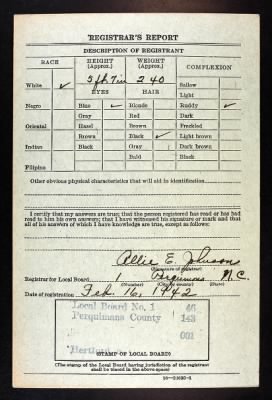 REGISTRAR'S REPORT
DESCRIPTION OF REGISTRANT
RACE HEIGHT (Approx.) WEIGHT (Approx.) COMPLEXION
White ✓ 5 ft 7 in 240 Sallow
EYES HAIR Light
Negro Blue ✓ Blonde Ruddy ✓
Gray Red Dark
Oriental Hazel Brown Freckled
Brown Black ✓ Light brown
Indian Black Gray Dark brown
Bald Black
Filipino
Other obvious physical characteristics that will aid in identification
I certify that my answers are true; that the person registered has read or has had
read to him his own answers; that I have witnessed his signature or mark and that
all of his answers of which I have knowledge are true, except as follows:
Allie E. Johnson
(Signature of registrar)
Registrar for Local Board 1 Perquimans N.C.
(Number) (City or county) (State)
Date of registration Feb 16, 1942
Local Board No. 1 46
Perquimans County 143
001
Hertford
(STAMP OF LOCAL BOARD)
(The stamp of the Local Board having jurisdiction of the registrant
shall be placed in the above space)